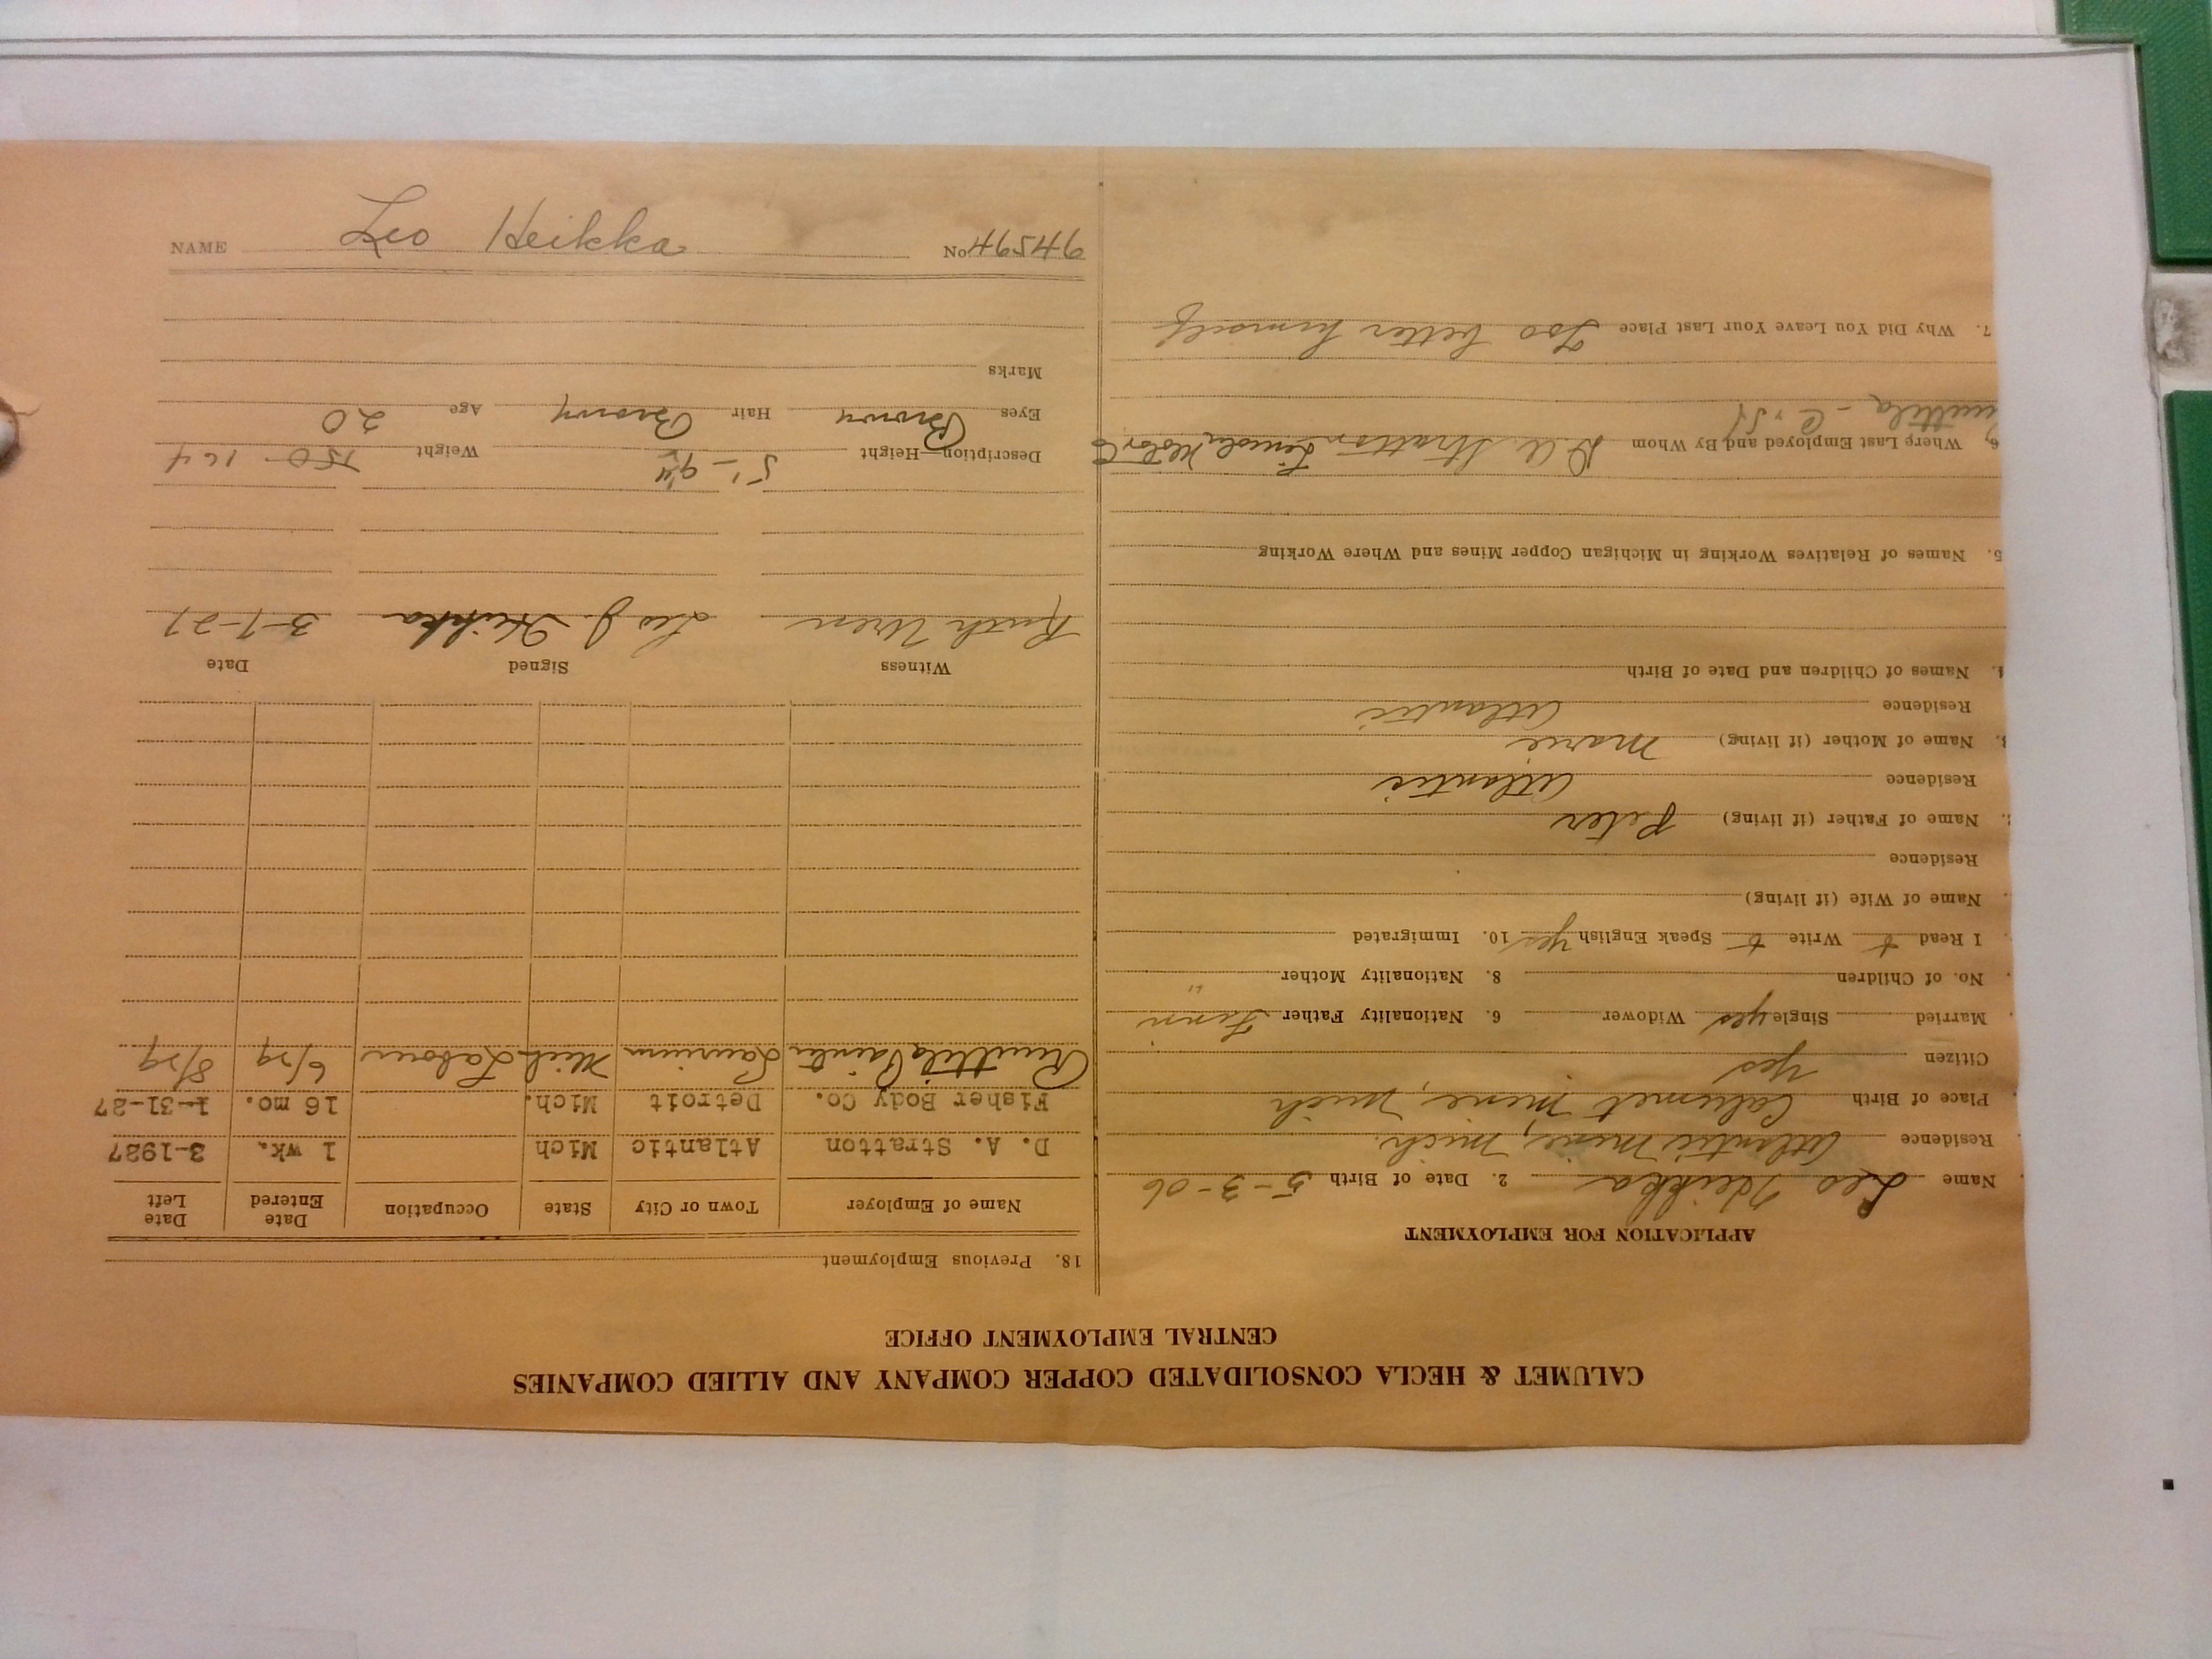 CALUMET & HECLA CONSOLIDATED COPPER COMPANY AND ALLIED COMPANIES
CENTRAL EMPLOYMENT OFFICE
APPLICATION FOR EMPLOYMENT
Name Leo Heikka 2. Date of Birth 5-3-06
Residence Atlantic Mine, Mich.
Place of Birth Calumet Mine, Mich
Citizen yes
Married Single yes Widower 6. Nationality Father Finn
No. of Children 8. Nationality Mother "
I Read Write Speak English yes 10. Immigrated
Name of Wife (if living)
Residence
Name of Father (if living) Peter
Residence Atlantic
Name of Mother (if living) Marie
Residence Atlantic
Names of Children and Date of Birth
5. Names of Relatives Working in Michigan Copper Mines and Where Working
6. Where Last Employed and By Whom D. A. Stratton Lincoln Motor Co
7. Why Did You Leave Your Last Place Too better himself
18. Previous Employment
Name of Employer Town or City State Occupation Date Entered Date Left
D. A. Stratton Atlantic Mich 1 wk. 3-1927
Fisher Body Co. Detroit Mich. 16 mo. 1-31-27
Laurium Mich Labour 6/29 8/29
Witness Signed Date
Ruth Uren Leo J. Heikka 3-7-27
Description—Height 5'-9½" Weight 150-164
Eyes Brown Hair Brown Age 20
Marks
NAME Leo Heikka
No. 94594